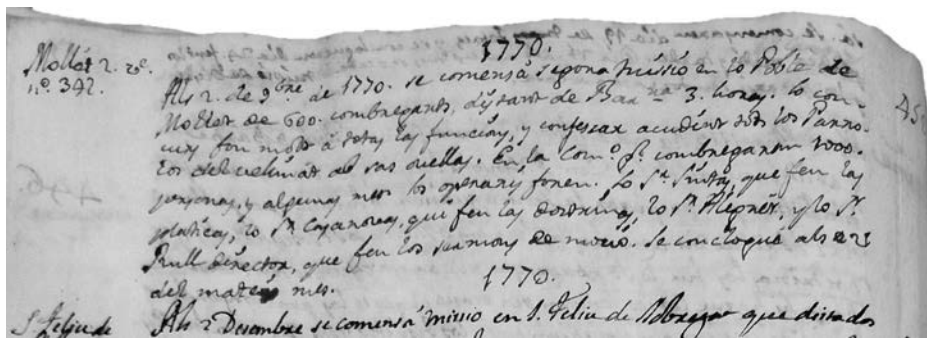 1770.
Mollet 2. ve.
nº. 392.
Als 2. de 9bre de 1770. se comensà segona missió en lo Poble de
Mollet de 600. combregants, distant de Barna 3. horas. lo con-
curs fou molt à totas las funcions, y confessar acudint tots los Parro-
cos del vehinat ab sas ovellas. En la Comº. gl. combregaren 2000.
personas, y algunas mes los operaris foren. Lo Sr. que feu las
platicas, lo Sr. Casanovas, qui feu las doctrinas, lo Sr. y lo Sr.
Rull director, que feu los sermons de missió. Se conclogué als 23
del mateix mes.
1770.
S. Feliu de
Als 2 Desembre se comensà missio en S. Feliu de Llobregat que dista dos